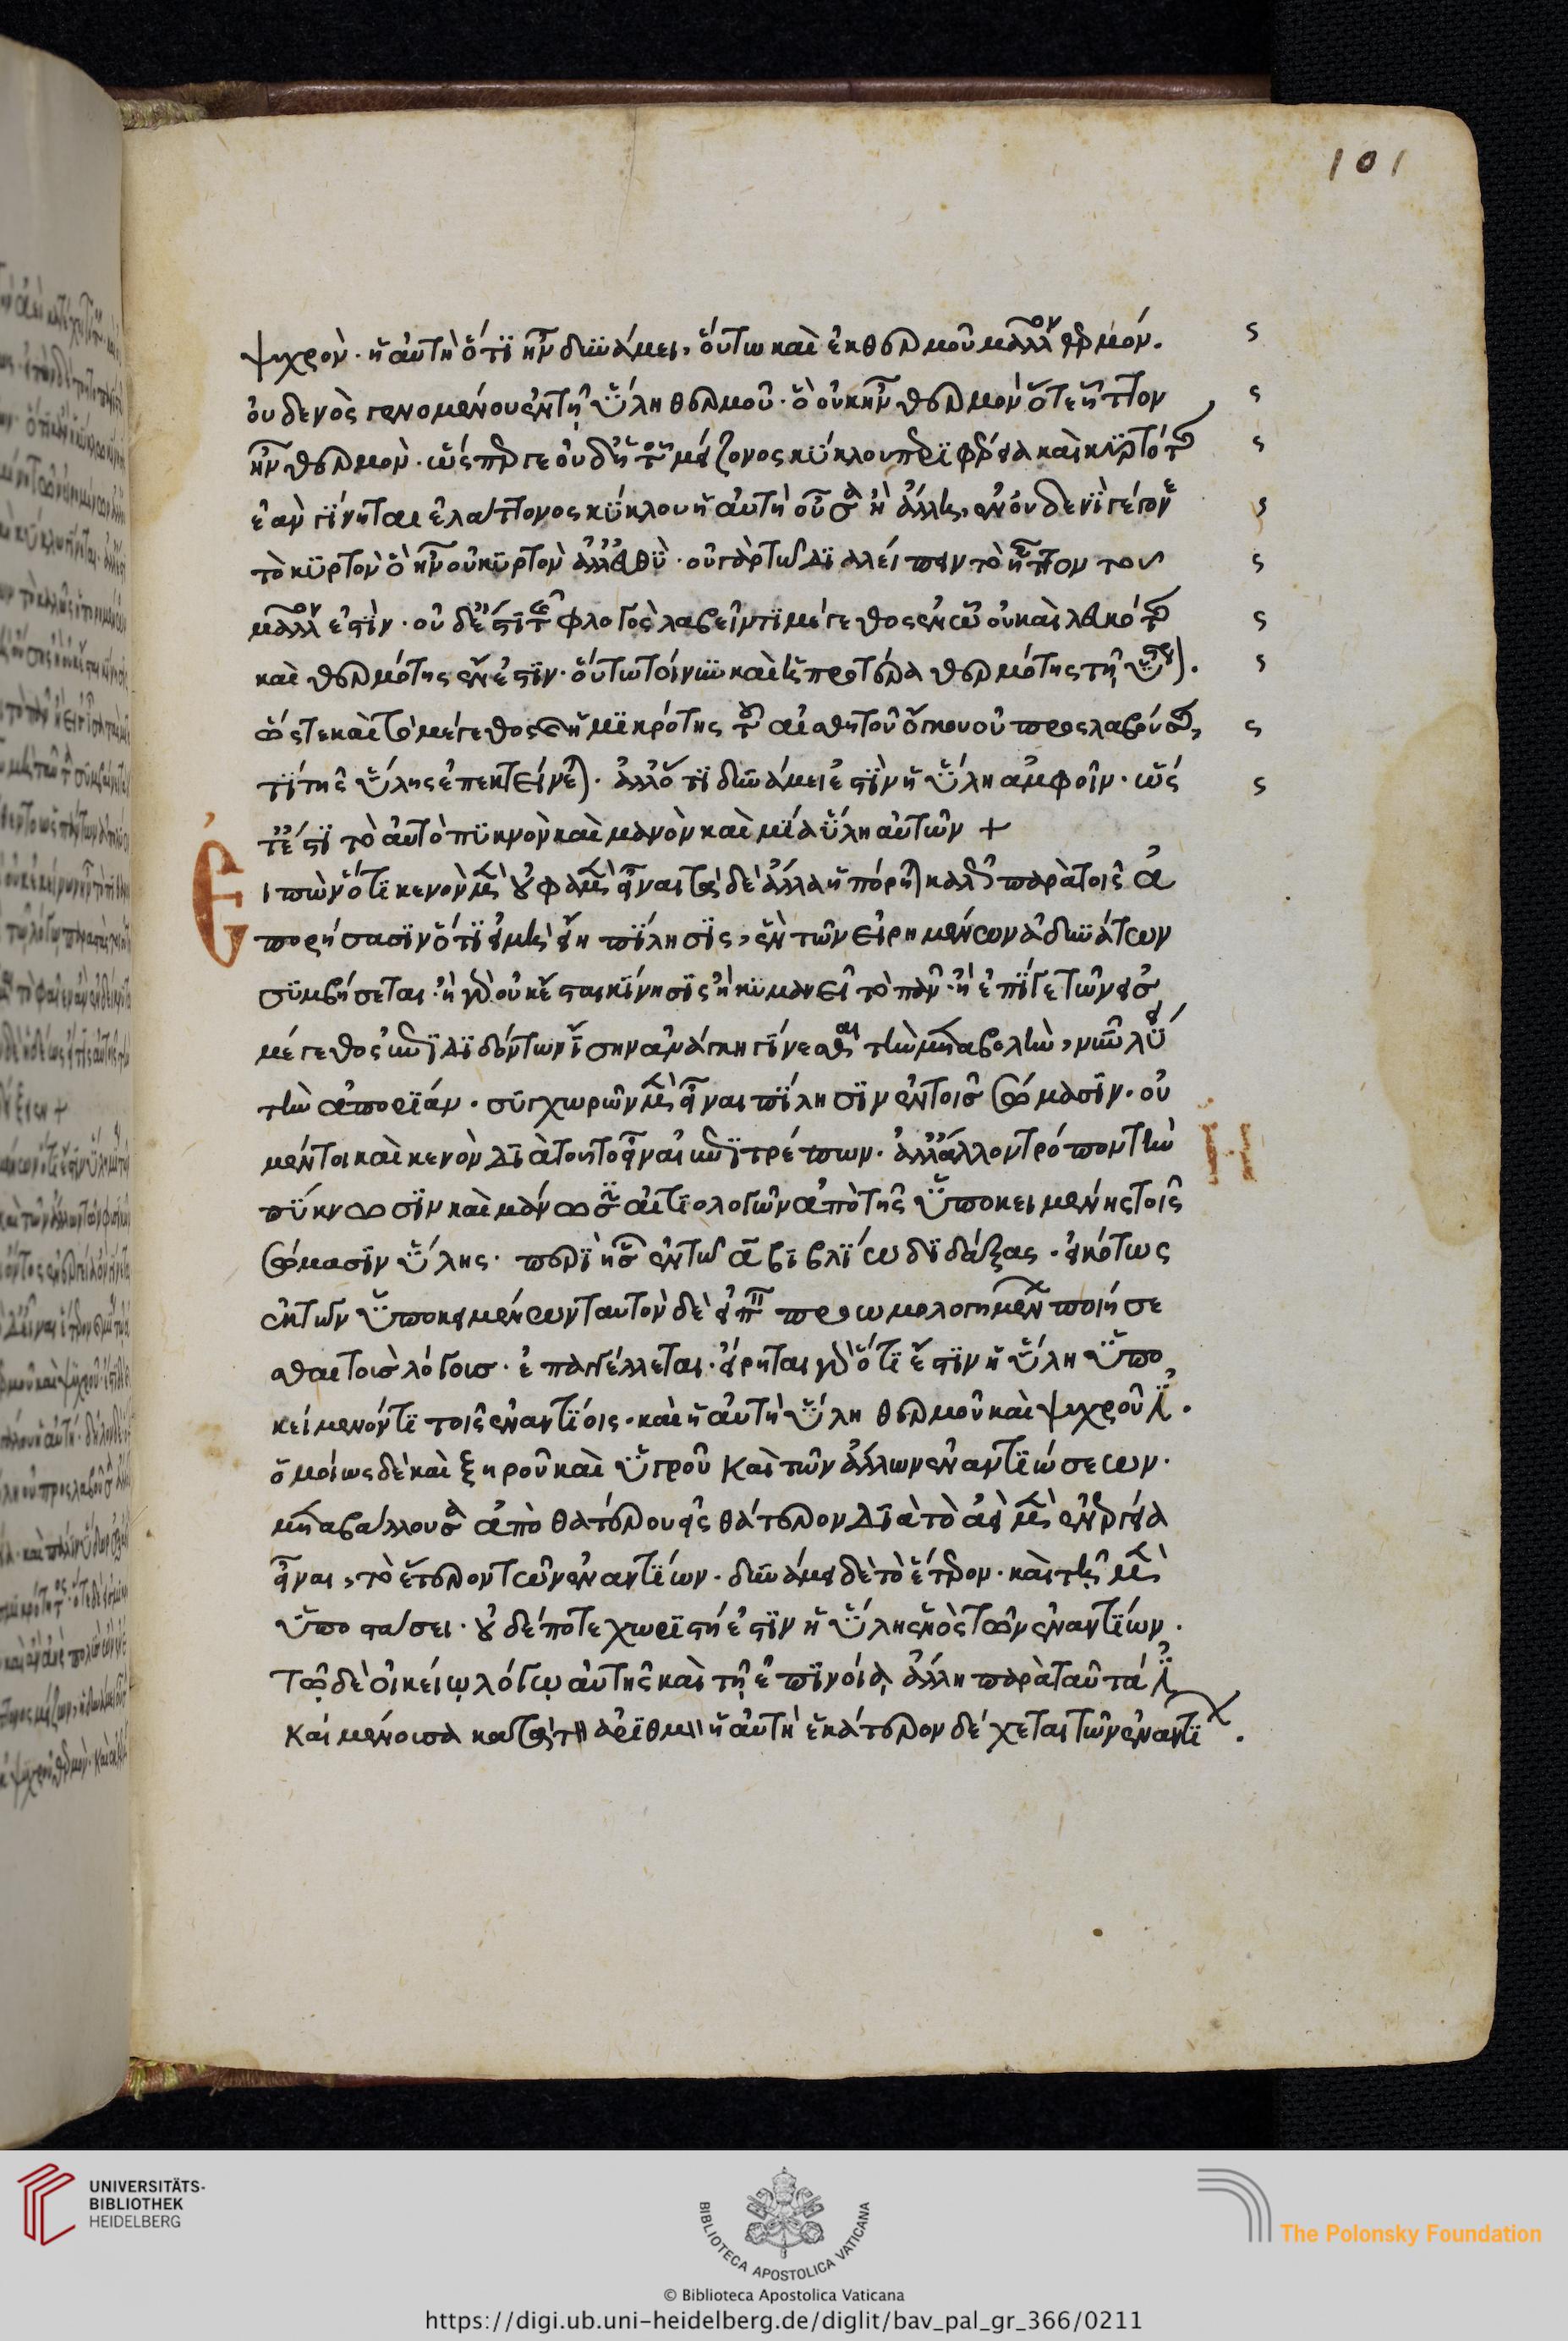 101
ψυχρὸν· ἡ αὐτὴ ὅτι ἦν δυνάμει, οὕτω καὶ ἐκ θερμοῦ μᾶλλον θερμόν.
οὐδενὸς γενομένου ἐν τῇ ὕλῃ θερμοῦ· ὃ οὐκ ἦν θερμὸν ὅτε ἧττον
ἦν θερμὸν· ὥσπερ γε οὐδ' ἡ τοῦ μείζονος κύκλου περιφέρεια καὶ κυρτότης
ἐὰν γίνηται ἐλάττονος κύκλου ἡ αὐτὴ οὖσα ἢ ἄλλη, ἐν οὐδενὶ γέγονε
τὸ κυρτὸν ὃ ἦν οὐ κυρτὸν ἀλλ' εὐθύ· οὐ γὰρ τῷ διαλείπειν τὸ ἧττον
μᾶλλον ἐστὶν· οὐδ' ἔστι τῆς φλογὸς λαβεῖν τι μέγεθος ἐν ᾧ οὐ καὶ λευκότης
καὶ θερμότης ἔνεστιν· οὕτω τοίνυν καὶ ἡ πρότερα θερμότης τῇ ὕστερον.
ὥστε καὶ τὸ μέγεθος καὶ ἡ μικρότης τοῦ αἰσθητοῦ ὄγκου οὐ προσλαβούσης
τι τῆς ὕλης ἐπεκτείνεται· ἀλλ' ὅτι δυνάμει ἐστὶν ἡ ὕλη ἀμφοῖν· ὥς
τ' ἔστι τὸ αὐτὸ πυκνὸν καὶ μανὸν καὶ μία ὕλη αὐτῶν +
Ειπὼν ὅτι κενὸν μὲν οὐ φαμὲν εἶναι τὰ δὲ ἄλλα ἠπόρηται καλῶς παρὰ τοῖς ἀ
πορήσασιν ὅτι εἰ μὴ εἴη πίλησις, ἓν τῶν εἰρημένων ἀδυνάτων
συμβήσεται· ἢ γὰρ οὐκ ἔσται κίνησις ἢ κυμανεῖ τὸ πᾶν· ἢ ἐπί γε τῶν εἰς
μέγεθος ἐπιδιδόντων ἴσην ἀνάγκη γίνεσθαι τὴν μεταβολὴν, νῦν λύει
τὴν ἀπορίαν· συγχωρῶν μὲν εἶναι πίλησιν ἐν τοῖς σώμασιν· οὐ
μέντοι καὶ κενὸν διὰ τοῦτο εἶναι ἐπιτρέπων· ἀλλ' ἄλλον τρόπον τὴν
Η
πύκνωσιν καὶ μάνωσιν αἰτιολογῶν ἀπὸ τῆς ὑποκειμένης τοῖς
σώμασιν ὕλης· περὶ ἧς ἐν τῷ α βιβλίῳ διδάξας· εἰκότως
ἐκ τῶν ὑποκειμένων ταυτὸν δὲ εἰπεῖν προωμολογημένων ποιήσε
σθαι τοὺς λόγους· ἐπαγγέλλεται· εἴρηται γὰρ ὅτι ἔστιν ἡ ὕλη ὑπο
κείμενόν τι τοῖς ἐναντίοις· καὶ ἡ αὐτὴ ὕλη θερμοῦ καὶ ψυχροῦ ἐστι.
ὁμοίως δὲ καὶ ξηροῦ καὶ ὑγροῦ καὶ τῶν ἄλλων ἐναντιώσεων.
μεταβάλλουσα ἀπὸ θατέρου εἰς θάτερον διὰ τὸ ἀεὶ μὲν ἐνεργείᾳ
εἶναι, τὸ ἕτερον τῶν ἐναντίων· δυνάμει δὲ τὸ ἕτερον· καὶ τῇ μὲν
ὑποστάσει· οὐδέποτε χωριστή ἐστιν ἡ ὕλη ἑνὸς τῶν ἐναντίων.
τῷ δὲ οἰκείῳ λόγῳ αὐτῆς καὶ τῇ ἐπινοίᾳ ἄλλη παρὰ ταῦτά ἐστι
καὶ μένουσα κατὰ τὸν ἀριθμὸν ἡ αὐτὴ ἑκάτερον δέχεται τῶν ἐναντίων.
UNIVERSITÄTS-
BIBLIOTHEK
HEIDELBERG
BIBLIOTECA APOSTOLICA VATICANA
The Polonsky Foundation
© Biblioteca Apostolica Vaticana
https://digi.ub.uni-heidelberg.de/diglit/bav_pal_gr_366/0211